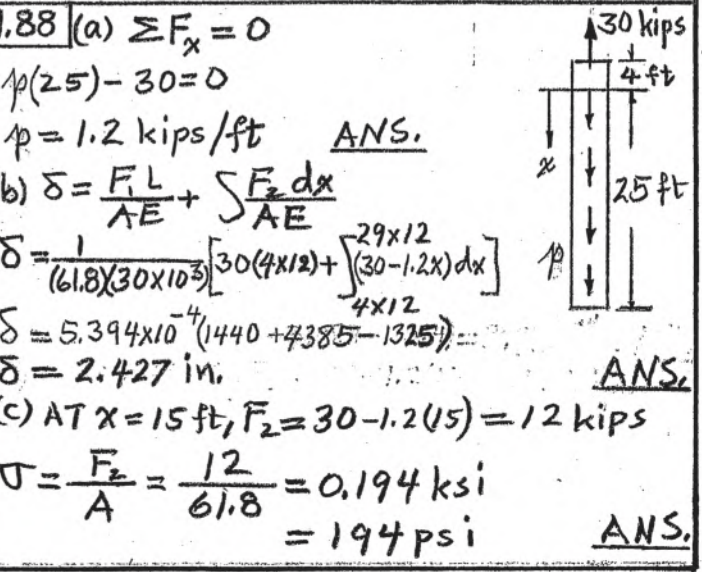 .88 (a) ΣFₓ = 0
p(25) - 30 = 0
p = 1.2 kips/ft ANS.
b) δ = F₁L/AE + ∫ F₂dx/AE
δ = 1/((61.8)(30×10³)) [30(4×12) + ∫_{4×12}^{29×12} (30-1.2x)dx]
δ = 5.394×10⁻⁴(1440 + 4385 - 1325)
δ = 2.427 in. ANS.
(c) AT x = 15 ft, F₂ = 30 - 1.2(15) = 12 kips
σ = F₂/A = 12/61.8 = 0.194 ksi
= 194 psi ANS.
30 kips
4 ft
x
25 ft
p